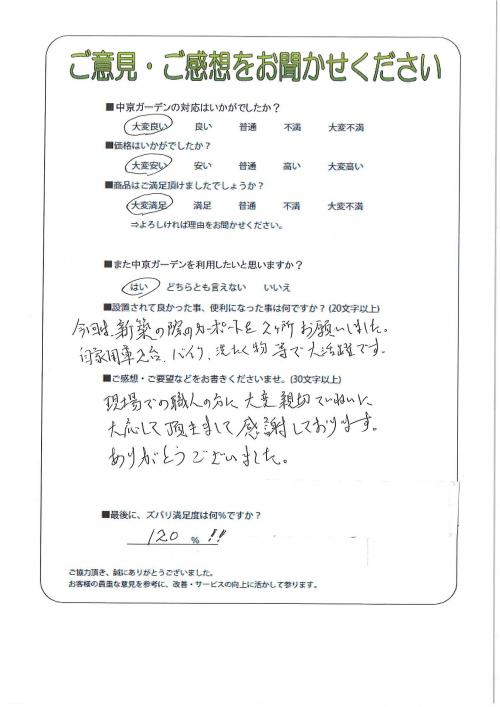 ご意見・ご感想をお聞かせください
■中京ガーデンの対応はいかがでしたか？
大変良い 良い 普通 不満 大変不満
■価格はいかがでしたか？
大変安い 安い 普通 高い 大変高い
■商品はご満足頂けましたでしょうか？
大変満足 満足 普通 不満 大変不満
⇒よろしければ理由をお聞かせください。
■また中京ガーデンを利用したいと思いますか？
はい どちらとも言えない いいえ
■設置されて良かった事、便利になった事は何ですか？(20文字以上)
今回は、新築の際のカーポートを2ヶ所お願いしました。
自家用車2台、バイク、洗たく物等で大活躍です。
■ご感想・ご要望などをお書きくださいませ。(30文字以上)
現場での職人の方に大変親切ていねいに
大応して頂きまして感謝しております。
ありがとうございました。
■最後に、ズバリ満足度は何％ですか？
120 % !!
ご協力頂き、誠にありがとうございました。
お客様の貴重な意見を参考に、改善・サービスの向上に活かして参ります。